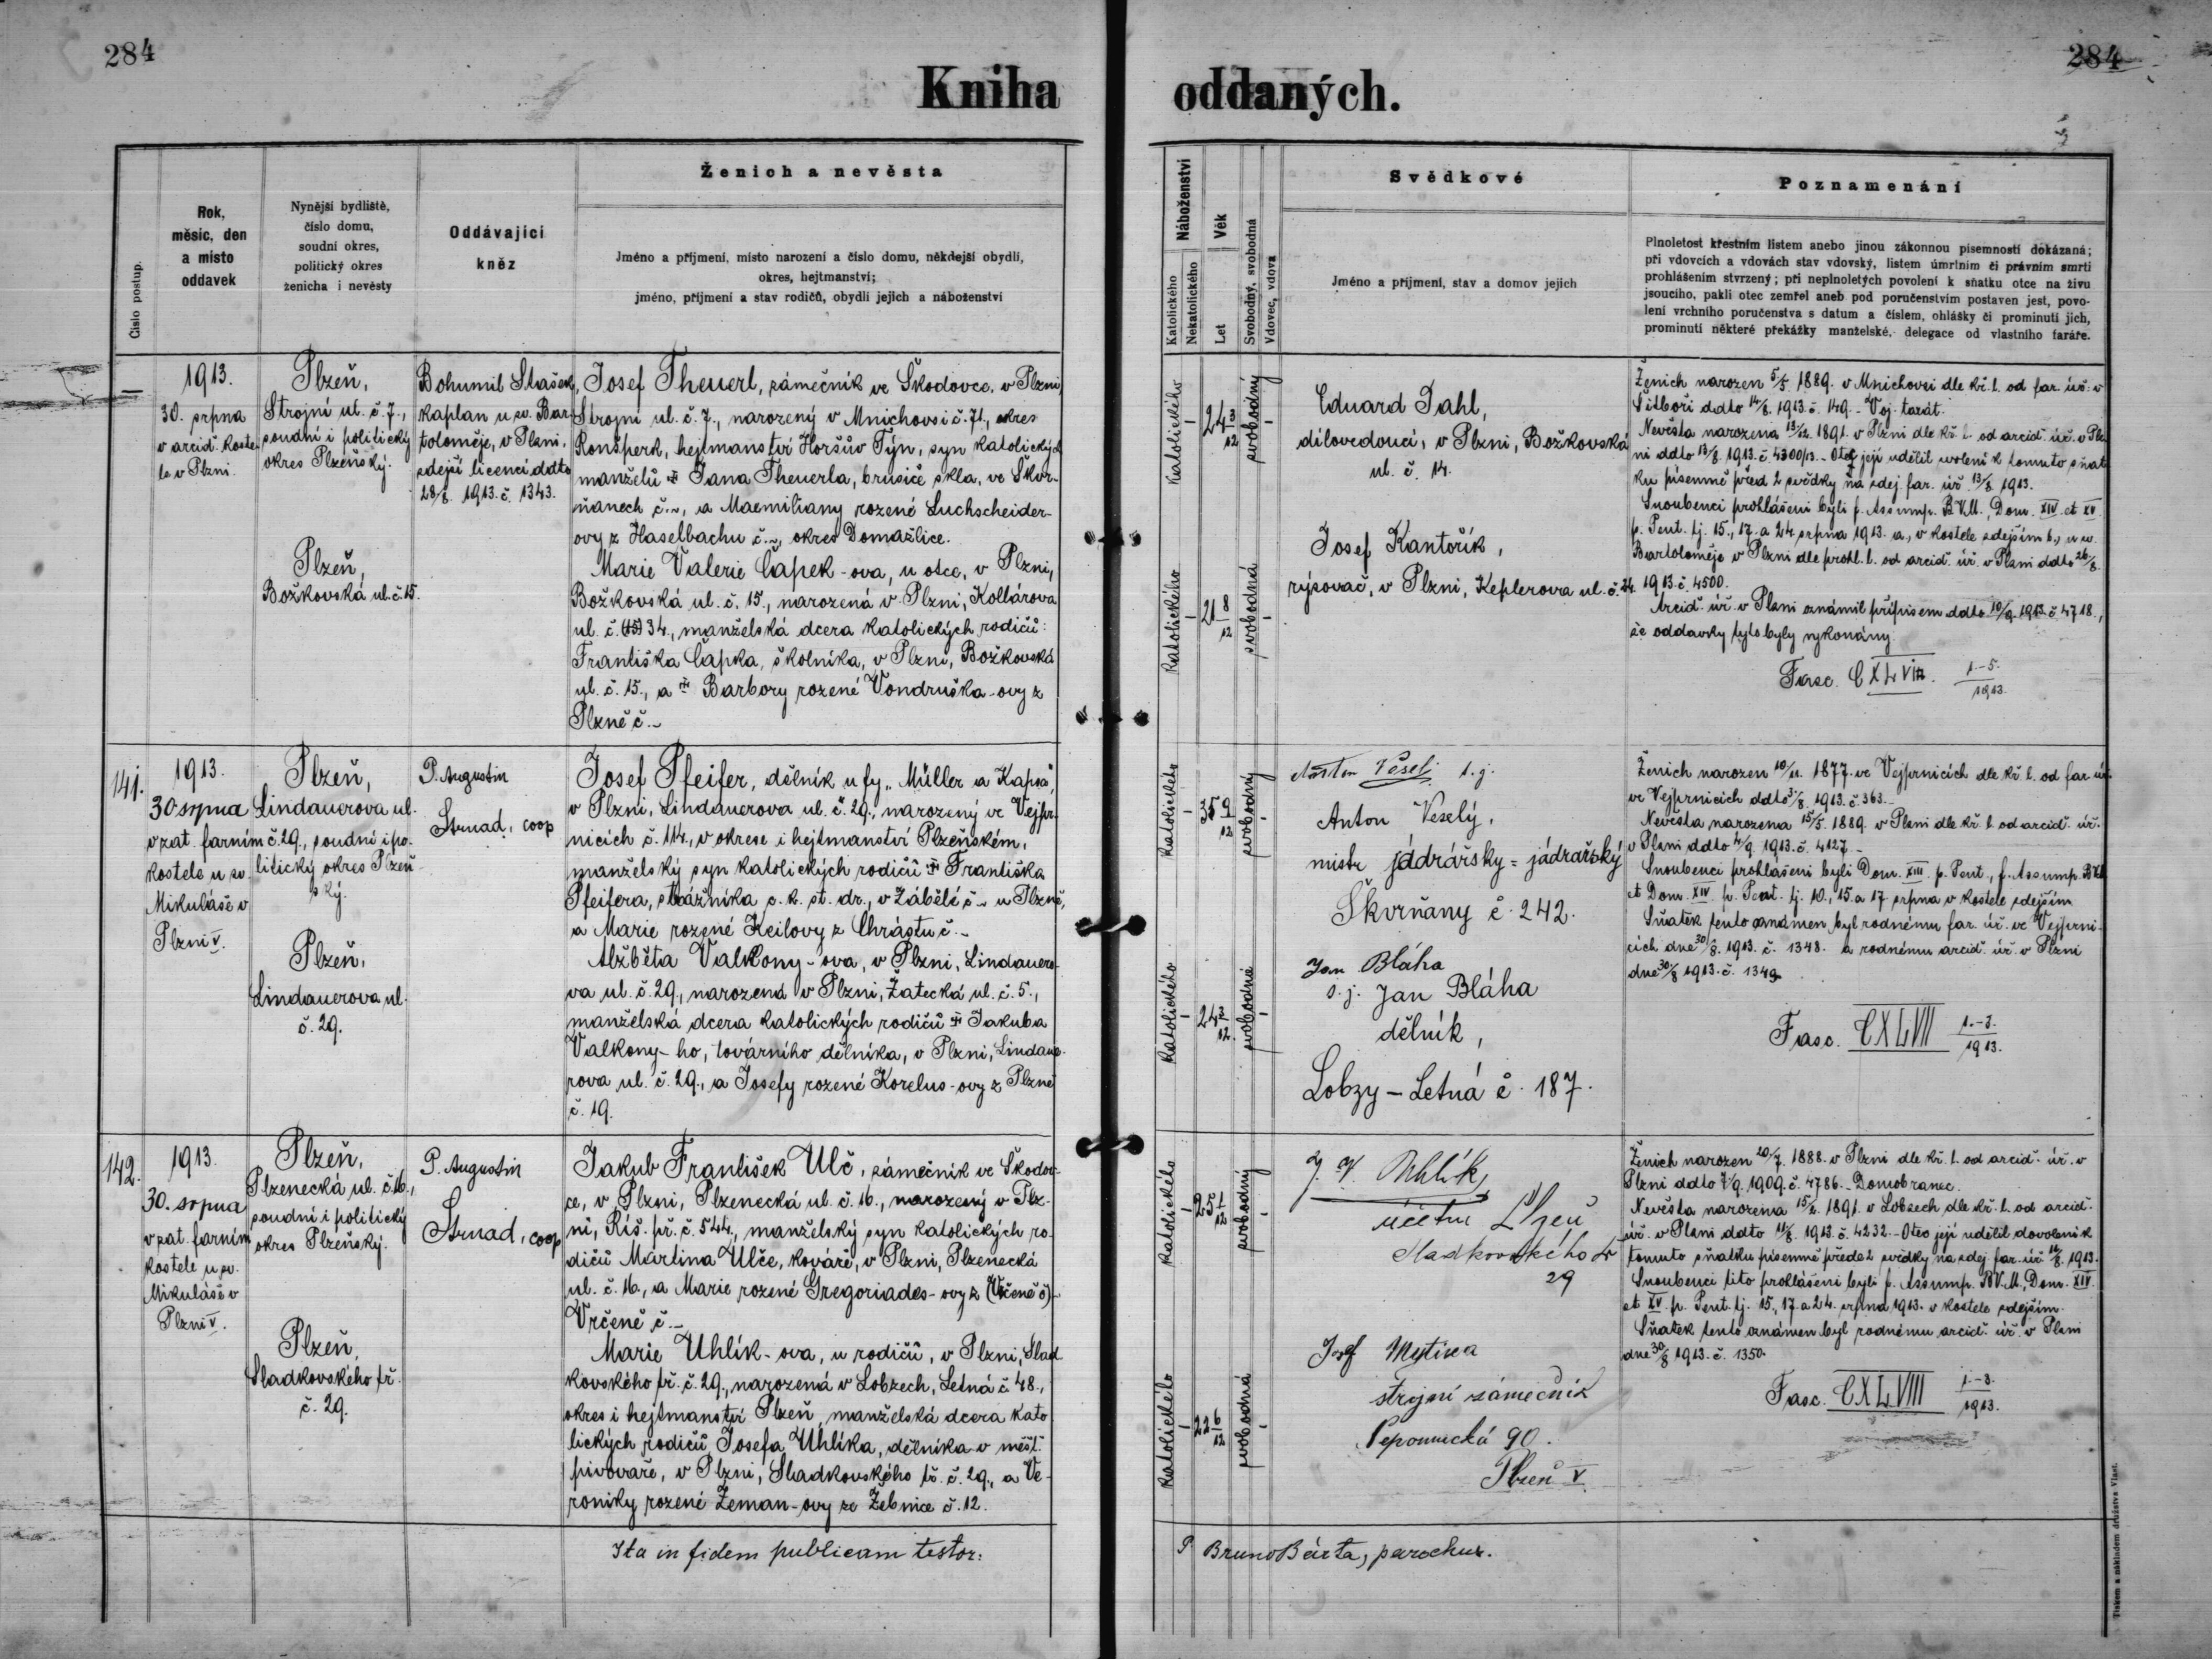 284
284
Kniha oddaných.
Číslo postup.
Rok,
měsíc, den
a místo
oddavek
Nynější bydliště,
číslo domu,
soudní okres,
politický okres
ženicha i nevěsty
Oddávající
kněz
Ženich a nevěsta
Jméno a příjmení, místo narození a číslo domu, někdejší obydlí,
okres, hejtmanství;
jméno, příjmení a stav rodičů, obydlí jejich a náboženství
Náboženství
Katolického
Nekatolického
Věk
Let
Svobodný, svobodná
Vdovec, vdova
Svědkové
Jméno a příjmení, stav a domov jejich
Poznamenání
Plnoletost křestním listem anebo jinou zákonnou písemností dokázaná;
při vdovcích a vdovách stav vdovský, listem úmrtním či právním smrti
prohlášením stvrzený; při neplnoletých povolení k sňatku otce na živu
jsoucího, pakli otec zemřel aneb pod poručenstvím postaven jest, povo-
lení vrchního poručenstva s datum a číslem, ohlášky či prominutí jich,
prominutí některé překážky manželské, delegace od vlastního faráře.
—
1913.
30. srpna
v arcid. koste-
le v Plzni.
Plzeň,
Strojní ul. č. 7.,
soudní i politický
okres Plzeňský.
Plzeň,
Božkovská ul. č. 15.
Bohumil Stašek,
kaplan u sv. Bar-
toloměje, v Plzni,
zdejší licencí ddto
28/8. 1913. č. 1343.
Josef Theuerl, zámečník ve Škodovce, v Plzni,
Strojní ul. č. 7., narozený v Mnichovsi č. 71., okres
Ronšperk, hejtmanství Horšův Týn, syn katolických
manželů Jana Theuerla, brusiče skla, ve Škvr-
ňanech č. ~, a Maxmiliany rozené Luchscheider-
ovy z Haselbachu č. ~, okres Domažlice.
Marie Valerie Čapek-ova, u otce, v Plzni,
Božkovská ul. č. 15., narozená v Plzni, Kollárova
ul. č. (15) 34., manželská dcera katolických rodičů:
Františka Čapka, školníka, v Plzni, Božkovská
ul. č. 15., a Barbory rozené Vondruška-ovy z
Plzně č. ~
katolického
–
24 3/12
svobodný
–
katolického
–
21 8/12
svobodná
–
Eduard Dahl,
dílovedoucí, v Plzni, Božkovská
ul. č. 14.
Josef Kantořík,
rýsovač, v Plzni, Keplerova ul. č. 24.
Ženich narozen 5/5. 1889. v Mnichovsi dle kř. l. od far. úř. v
Štítboři ddto 14/8. 1913. č. 149. – Voj. taxát.
Nevěsta narozena 13/12. 1891. v Plzni dle kř. l. od arcid. úř. v Plz-
ni ddto 13/8. 1913. č. 4300/13. – Otec její udělil svolení k tomuto sňat-
ku písemně před 2 svědky na zdej. far. úř. 13/8. 1913.
Snoubenci prohlášeni byli f. Assump. B.V.M., Dom. XIV. et XV.
p. Pent. tj. 15., 17. a 24. srpna 1913. a, v kostele zdejším b, u sv.
Bartoloměje v Plzni dle prohl. l. od arcid. úř. v Plzni ddto 26/8.
1913. č. 4500.
Arcid. úř. v Plzni oznámil přípisem ddto 10/9. 1913. č. 4718.,
že oddavky tyto byly vykonány.
Fasc. CXLVIII. 1.-5./1913.
141.
1913.
30 srpna
v zat. farním
kostele u sv.
Mikuláše v
Plzni V.
Plzeň,
Lindauerova ul.
č. 29., soudní i po-
litický okres Plzeň-
ský.
Plzeň,
Lindauerova ul.
č. 29.
P. Augustin
Strnad, coop
Josef Pfeifer, dělník u fy „Müller a Kapsa“,
v Plzni, Lindauerova ul. č. 29., narozený ve Vejpr-
nicích č. 114., v okrese i hejtmanství Plzeňském,
manželský syn katolických rodičů Františka
Pfeifera, strážníka c. k. st. dr., v Zábělé č. ~ u Plzně,
a Marie rozené Keilovy z Chrástu č. ~
Alžběta Valkony-ova, v Plzni, Lindauero-
va ul. č. 29., narozená v Plzni, Žatecká ul. č. 5.,
manželská dcera katolických rodičů Jakuba
Valkony-ho, továrního dělníka, v Plzni, Lindaue-
rova ul. č. 29., a Josefy rozené Korelus-ovy z Plzně
č. 19.
katolického
–
35 9/12
svobodný
–
katolického
–
24 3/12
svobodná
–
Anton Veselý s. j.
Anton Veselý,
mistr jádrářsky = jádrařský
Škvrňany č. 242.
Jan Bláha
s. j. Jan Bláha
dělník,
Lobzy – Letná č. 187.
Ženich narozen 10/11. 1877. ve Vejprnicích dle kř. l. od far. úř.
ve Vejprnicích ddto 3/8. 1913. č. 363.
Nevěsta narozena 15/5. 1889. v Plzni dle kř. l. od arcid. úř.
v Plzni ddto 4/8. 1913. č. 4127.–
Snoubenci prohlášeni byli Dom. XIII. p. Pent., f. Assump. B.V.M.
et Dom. XIV. p. Pent. tj. 10., 15. a 17 srpna v kostele zdejším
Sňatek tento oznámen byl rodnému far. úř. ve Vejprni-
cích dne 30/8. 1913. č. 1348. a rodnému arcid. úř. v Plzni
dne 30/8 1913. č. 1349.
Fasc. CXLVIII 1.-3./1913.
142.
1913.
30. srpna
v zat. farním
kostele u sv.
Mikuláše v
Plzni V.
Plzeň,
Plzenecká ul. č. 16.,
soudní i politický
okres Plzeňský.
Plzeň,
Sladkovského tř.
č. 29.
P. Augustin
Strnad, coop
Jakub František Ulč, zámečník ve Škodov-
ce, v Plzni, Plzenecká ul. č. 16., narozený v Plz-
ni, Říš. př. č. 544., manželský syn katolických ro-
dičů Martina Ulče, kováře, v Plzni, Plzenecká
ul. č. 16., a Marie rozené Gregoriades-ovy z (Vrčeně č)
Vrčeně č. ~
Marie Uhlík-ova, u rodičů, v Plzni, Slad-
kovského tř. č. 29., narozená v Lobzech, Letná č. 48.,
okres i hejtmanství Plzeň, manželská dcera kato-
lických rodičů Josefa Uhlíka, dělníka v měšť.
pivovaře, v Plzni, Sladkovského tř. č. 29., a Ve-
roniky rozené Zeman-ovy ze Žebnice č. 12.
katolického
–
25 1/12
svobodný
–
katolického
–
22 6/12
svobodná
–
Uhlík
účetní Plzeň
Sladkovského tř
29
Josef Mytina
strojní zámečník
Nepomucká 90.
Plzeň V.
Ženich narozen 20/7. 1888. v Plzni dle kř. l. od arcid. úř. v
Plzni ddto 7/9. 1909. č. 4786. – Domobranec.
Nevěsta narozena 15/2. 1891. v Lobzech dle kř. l. od arcid.
úř. v Plzni ddto 11/8. 1913. č. 4232. – Otec její udělil dovolení k
tomuto sňatku písemně přede 2 svědky na zdej. far. úř. 12/8. 1913.
Snoubenci tito prohlášeni byli f. Assump. B.V.M., Dom. XIV.
et XV. p. Pent. tj. 15., 17. a 24. srpna 1913. v kostele zdejším.
Sňatek tento oznámen byl rodnému arcid. úř. v Plzni
dne 30/8 1913. č. 1350.
Fasc. CXLVIII 1.-3./1913.
Ita in fidem publicam testor: P Bruno Bárta, parochus.
Tiskem a nákladem družstva Vlast.